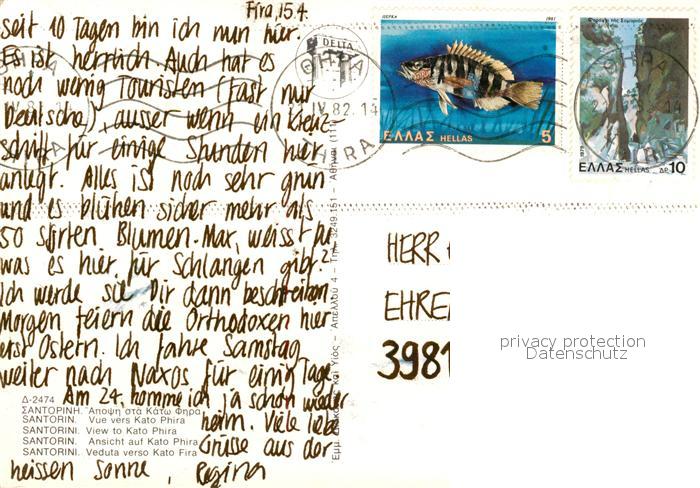 Fira, 15.4.
seit 10 Tagen bin ich nun hier.
Es ist herrlich. Auch hat es
noch wenig Touristen (fast nur
Deutsche), ausser wenn ein Kreuz-
schiff für einige Stunden hier
anlegt. Alles ist noch sehr grün
und es blühen sicher mehr als
50 Sorten Blumen. Mar, weisst Du
was es hier für Schlangen gibt?
Ich werde sie Dir dann beschreiben.
Morgen feiern die Orthodoxen hier
erst Ostern. Ich fahre Samstag
weiter nach Naxos für einig Tage
Am 24. komme ich ja schon wieder
heim. Viele liebe
Grüsse aus der
heissen Sonne, Regina
Δ-2474
ΣΑΝΤΟΡΙΝΗ. Ἄποψη στά Κάτω Φηρα
SANTORIN. Vue vers Kato Phira
SANTORIN. View to Kato Phira
SANTORIN. Ansicht auf Kato Phira
SANTORIN. Veduta verso Kato Fira
DELTA
Ἀπελλοῦ 4 – Τηλ. 3249.151 – Ἀθῆναι (111)
ΠΕΡΚΑ 1981
ΕΛΛΑΣ HELLAS 5
1979
ΕΛΛΑΣ HELLAS ΔΡ. 10
ΘΗΡΑ
IV.82.14
THIRA
HERR
EHRE
3981
privacy protection
Datenschutz